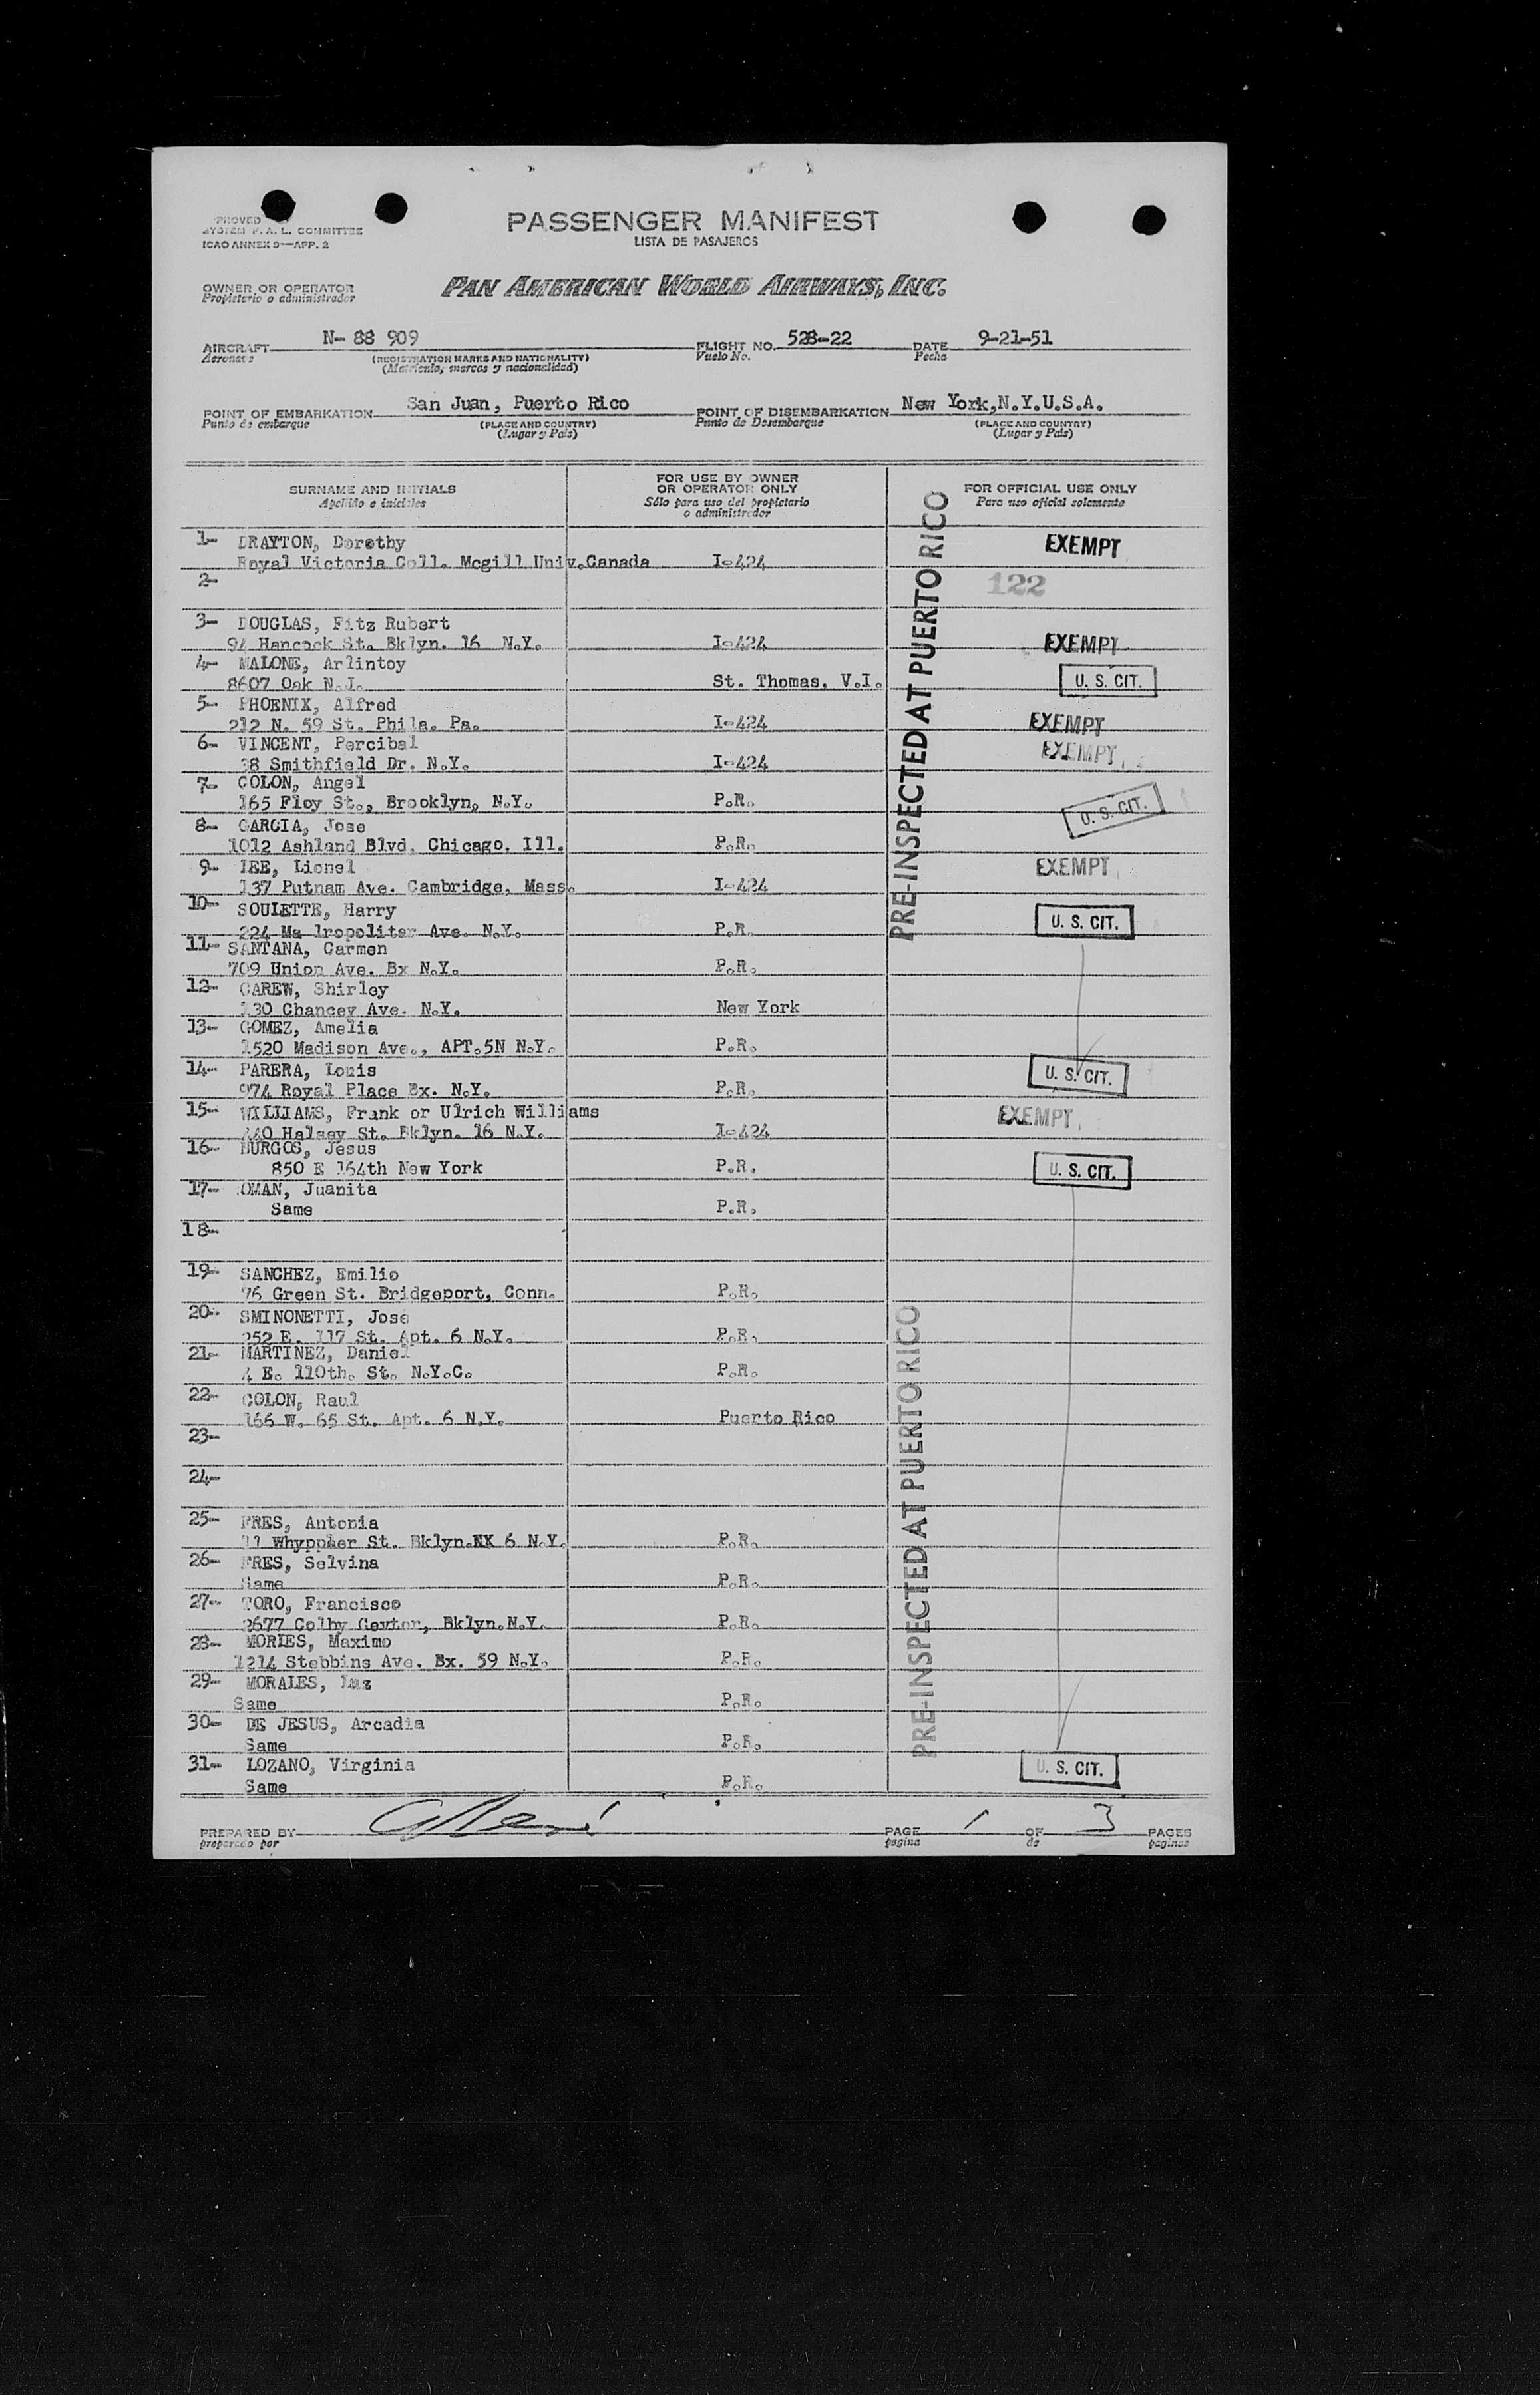 PROVED
SYSTEM F. A. L. COMMITTEE
ICAO ANNEX 9—APP. 2
PASSENGER MANIFEST
LISTA DE PASAJEROS
OWNER OR OPERATOR
Propietario o administrador
PAN AMERICAN WORLD AIRWAYS, INC.
AIRCRAFT N- 88 909 FLIGHT NO. 528-22 DATE 9-21-51
Aeronave (REGISTRATION MARKS AND NATIONALITY) Vuelo No. Fecha
(Matrícula, marcas y nacionalidad)
POINT OF EMBARKATION San Juan, Puerto Rico POINT OF DISEMBARKATION New York,N.Y.U.S.A.
Punto de embarque (PLACE AND COUNTRY) Punto de Desembarque (PLACE AND COUNTRY)
(Lugar y País) (Lugar y País)
SURNAME AND INITIALS
Apellido e iniciales
FOR USE BY OWNER
OR OPERATOR ONLY
Sólo para uso del propietario
o administrador
FOR OFFICIAL USE ONLY
Para uso oficial solamente
PRE-INSPECTED AT PUERTO RICO
1- DRAYTON, Dorothy EXEMPT
Royal Victoria Coll. Mcgill Univ.Canada I-424
2- 122
3- DOUGLAS, Fitz Rubert
94 Hancock St. Bklyn. 16 N.Y. I-424 EXEMPT
4- MALONE, Arlintoy
8607 Oak N.J. St. Thomas, V.I. U. S. CIT.
5- PHOENIX, Alfred
212 N. 59 St. Phila. Pa. I-424 EXEMPT
6- VINCENT, Percibal EXEMPT
38 Smithfield Dr. N.Y. I-424
7- COLON, Angel
165 Floy St., Brooklyn, N.Y. P.R. U. S. CIT.
8- GARCIA, Jose
1012 Ashland Blvd. Chicago, Ill. P.R.
9- LEE, Lionel EXEMPT
137 Putnam Ave. Cambridge, Mass. I-424
10- SOULETTE, Harry
224 Ma lropolitar Ave. N.Y. P.R. U. S. CIT.
11- SANTANA, Carmen
709 Union Ave. Bx N.Y. P.R.
12- CAREW, Shirley
130 Chancey Ave. N.Y. New York
13- GOMEZ, Amelia
1520 Madison Ave., APT.5N N.Y. P.R.
14- PARERA, Louis U. S. CIT.
974 Royal Place Bx. N.Y. P.R.
15- WILLIAMS, Frank or Ulrich Williams EXEMPT
440 Halsey St. Bklyn. 16 N.Y. I-424
16- BURGOS, Jesus
850 E 164th New York P.R. U. S. CIT.
17- OMAN, Juanita
Same P.R.
18-
19- SANCHEZ, Emilio
76 Green St. Bridgeport, Conn. P.R.
20- SMINONETTI, Jose
252 E. 117 St. Apt. 6 N.Y. P.R.
21- MARTINEZ, Daniel
4 E. 110th. St. N.Y.C. P.R.
22- COLON, Raul
166 W. 65 St. Apt. 6 N.Y. Puerto Rico
23-
24-
PRE-INSPECTED AT PUERTO RICO
25- FRES, Antonia
11 St. Bklyn.XX 6 N.Y. P.R.
26- FRES, Selvina
Same P.R.
27- TORO, Francisco
2677 Colby Bklyn.N.Y. P.R.
28- MORLES, Maximo
1214 Stebbins Ave. Bx. 59 N.Y. P.R.
29- MORALES, Luz
Same P.R.
30- DE JESUS, Arcadia
Same P.R.
31- LOZANO, Virginia
Same P.R. U. S. CIT.
PREPARED BY PAGE 1 OF 3 PAGES
preparado por pagina de paginas